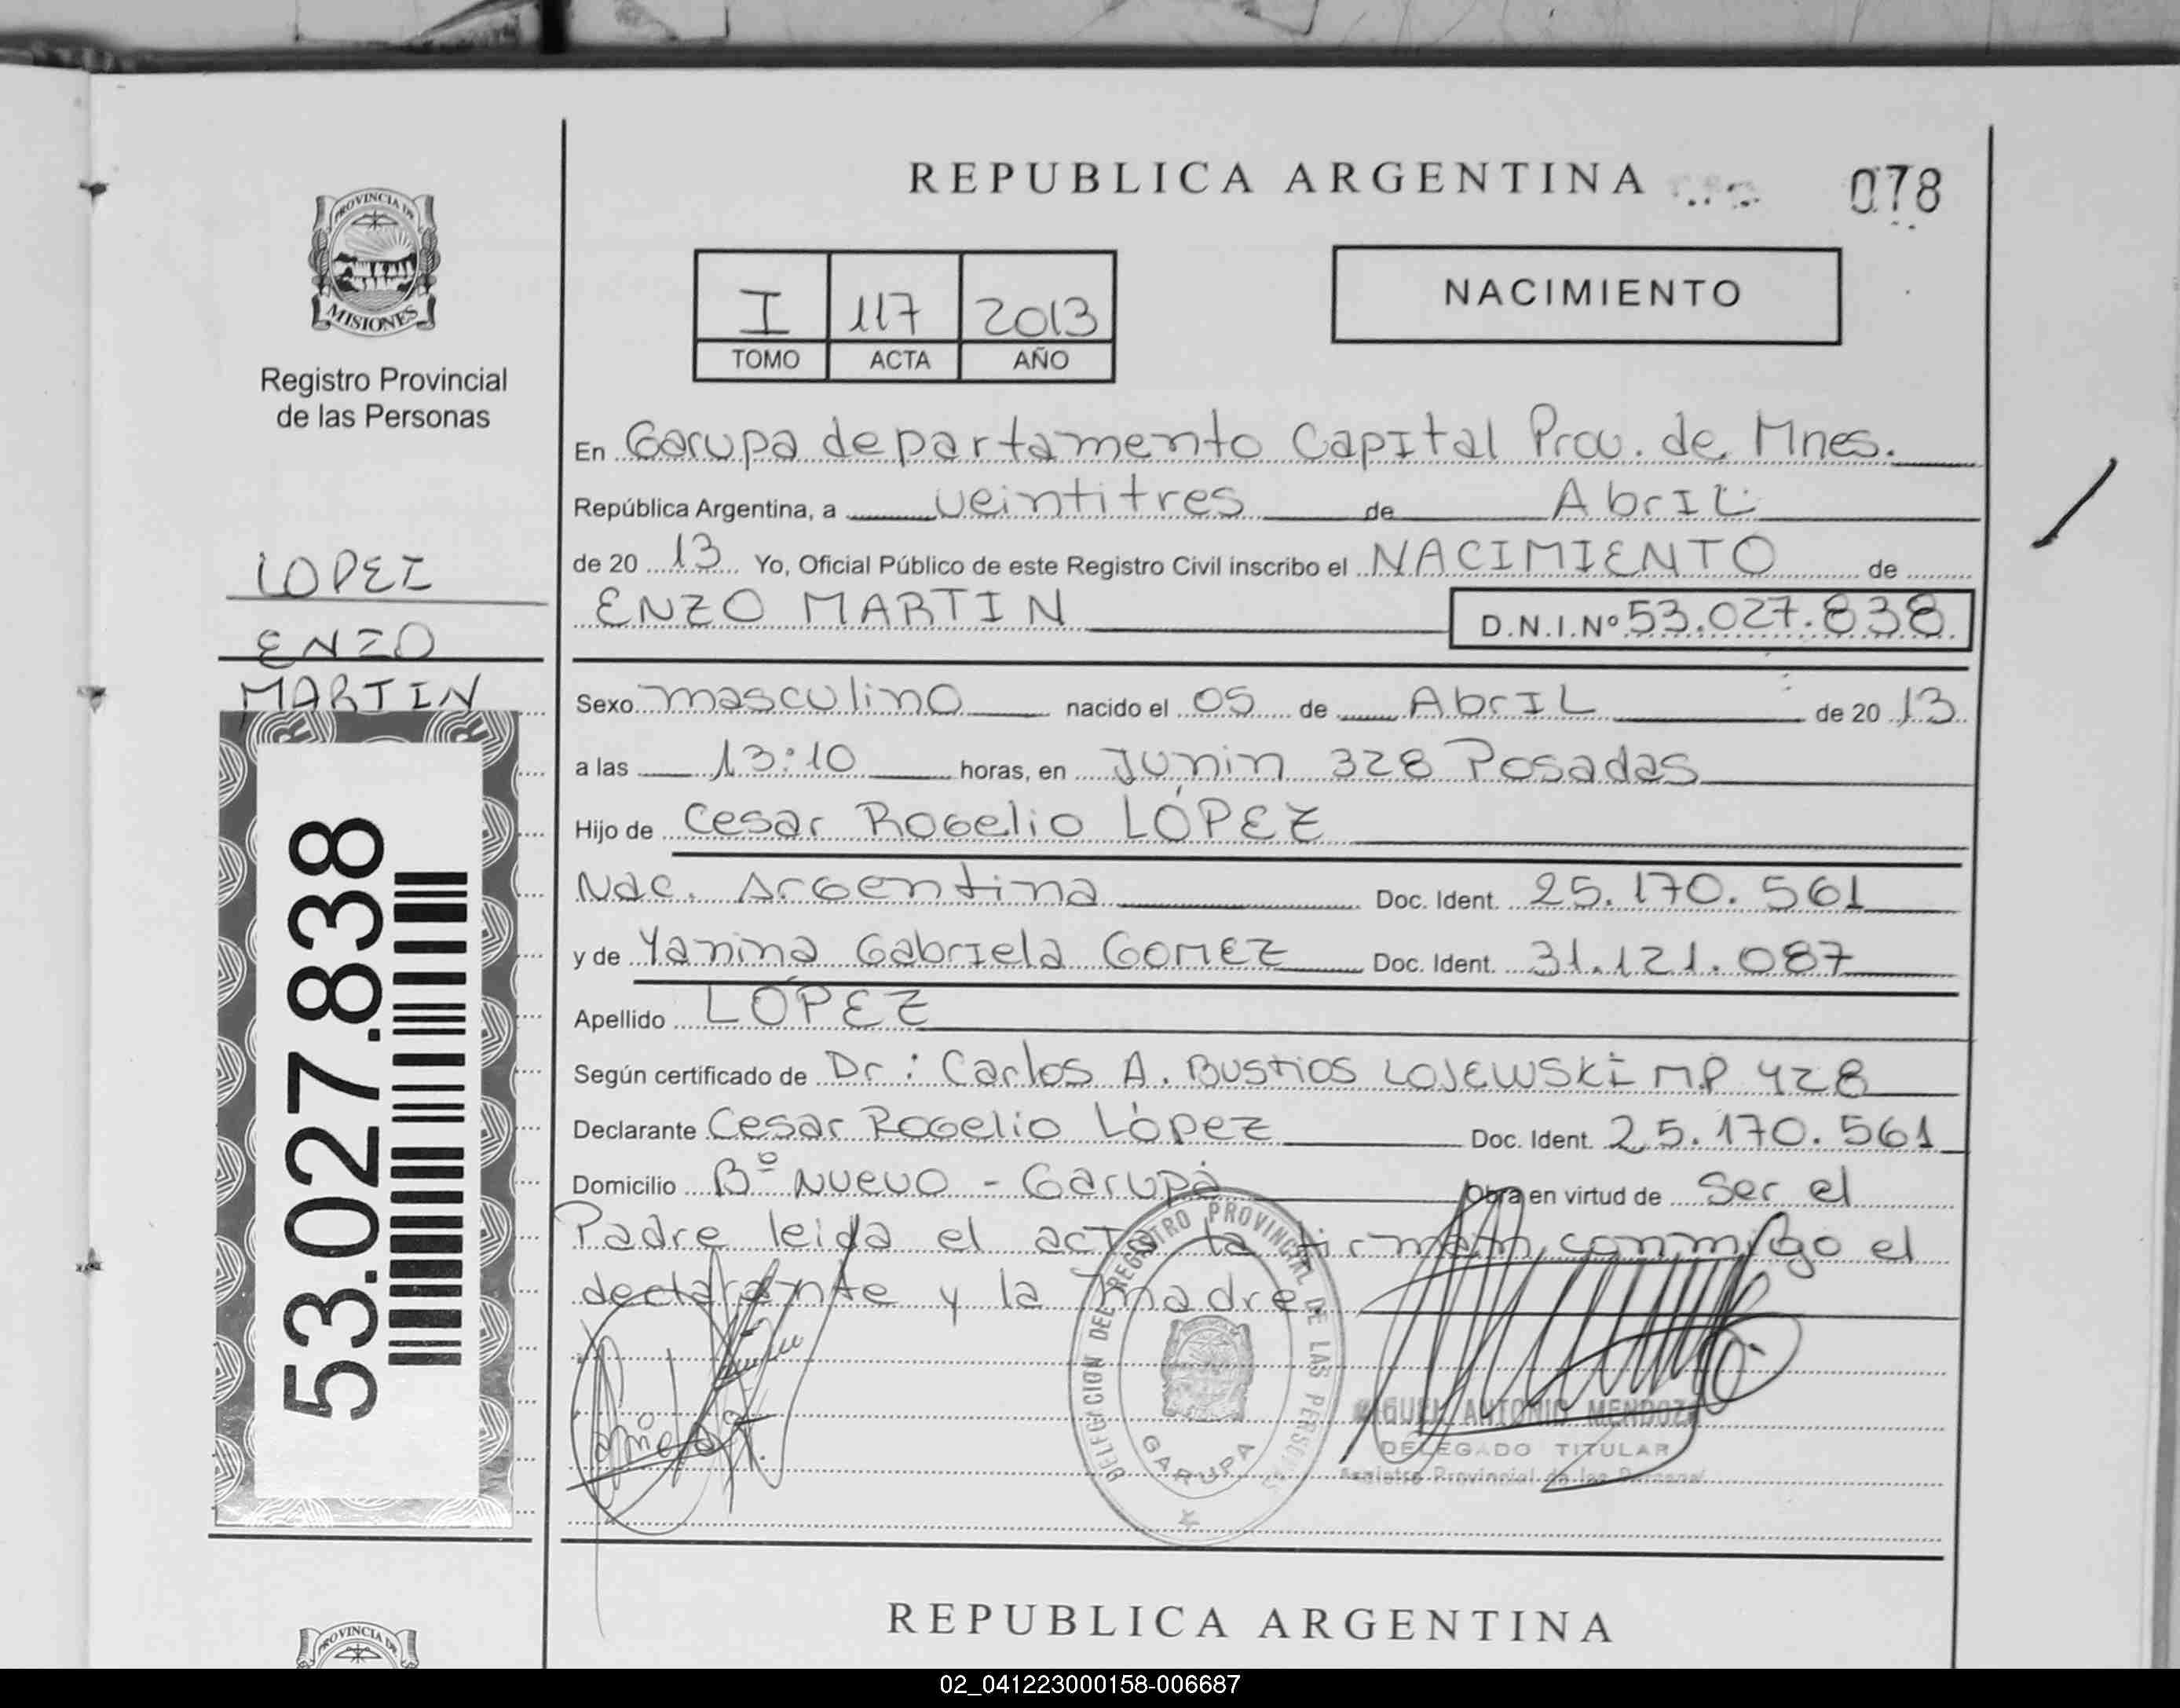 REPUBLICA ARGENTINA
078
PROVINCIA DE
MISIONES
Registro Provincial
de las Personas
I 117 2013
TOMO ACTA AÑO
NACIMIENTO
En Garupa departamento Capital Prov. de Mnes.
República Argentina, a veintitres de Abril
de 20 13 Yo, Oficial Público de este Registro Civil inscribo el NACIMIENTO de
ENZO MARTIN D.N.I.Nº 53.027.838
LOPEZ
ENZO
MARTIN
53.027.838
Sexo masculino nacido el 05 de Abril de 20 13
a las 13:10 horas, en Junin 328 Posadas
Hijo de Cesar Rogelio LÓPEZ
Nac. Argentina Doc. Ident. 25.170.561
y de Yanina Gabriela GOMEZ Doc. Ident. 31.121.087
Apellido LÓPEZ
Según certificado de Dr: Carlos A. Bustios LOJEWSKI M.P 428
Declarante Cesar Rogelio López Doc. Ident. 25.170.561
Domicilio Bº Nuevo - Garupá Obra en virtud de Ser el
Padre leida el acta la firman conmigo el
declarante y la madre.
DELEGACION DEL REGISTRO PROVINCIAL DE LAS PERSONAS
GARUPA
MIGUEL ANTONIO MENDOZA
DELEGADO TITULAR
Registro Provincial de las Personas
REPUBLICA ARGENTINA
PROVINCIA DE
02_041223000158-006687